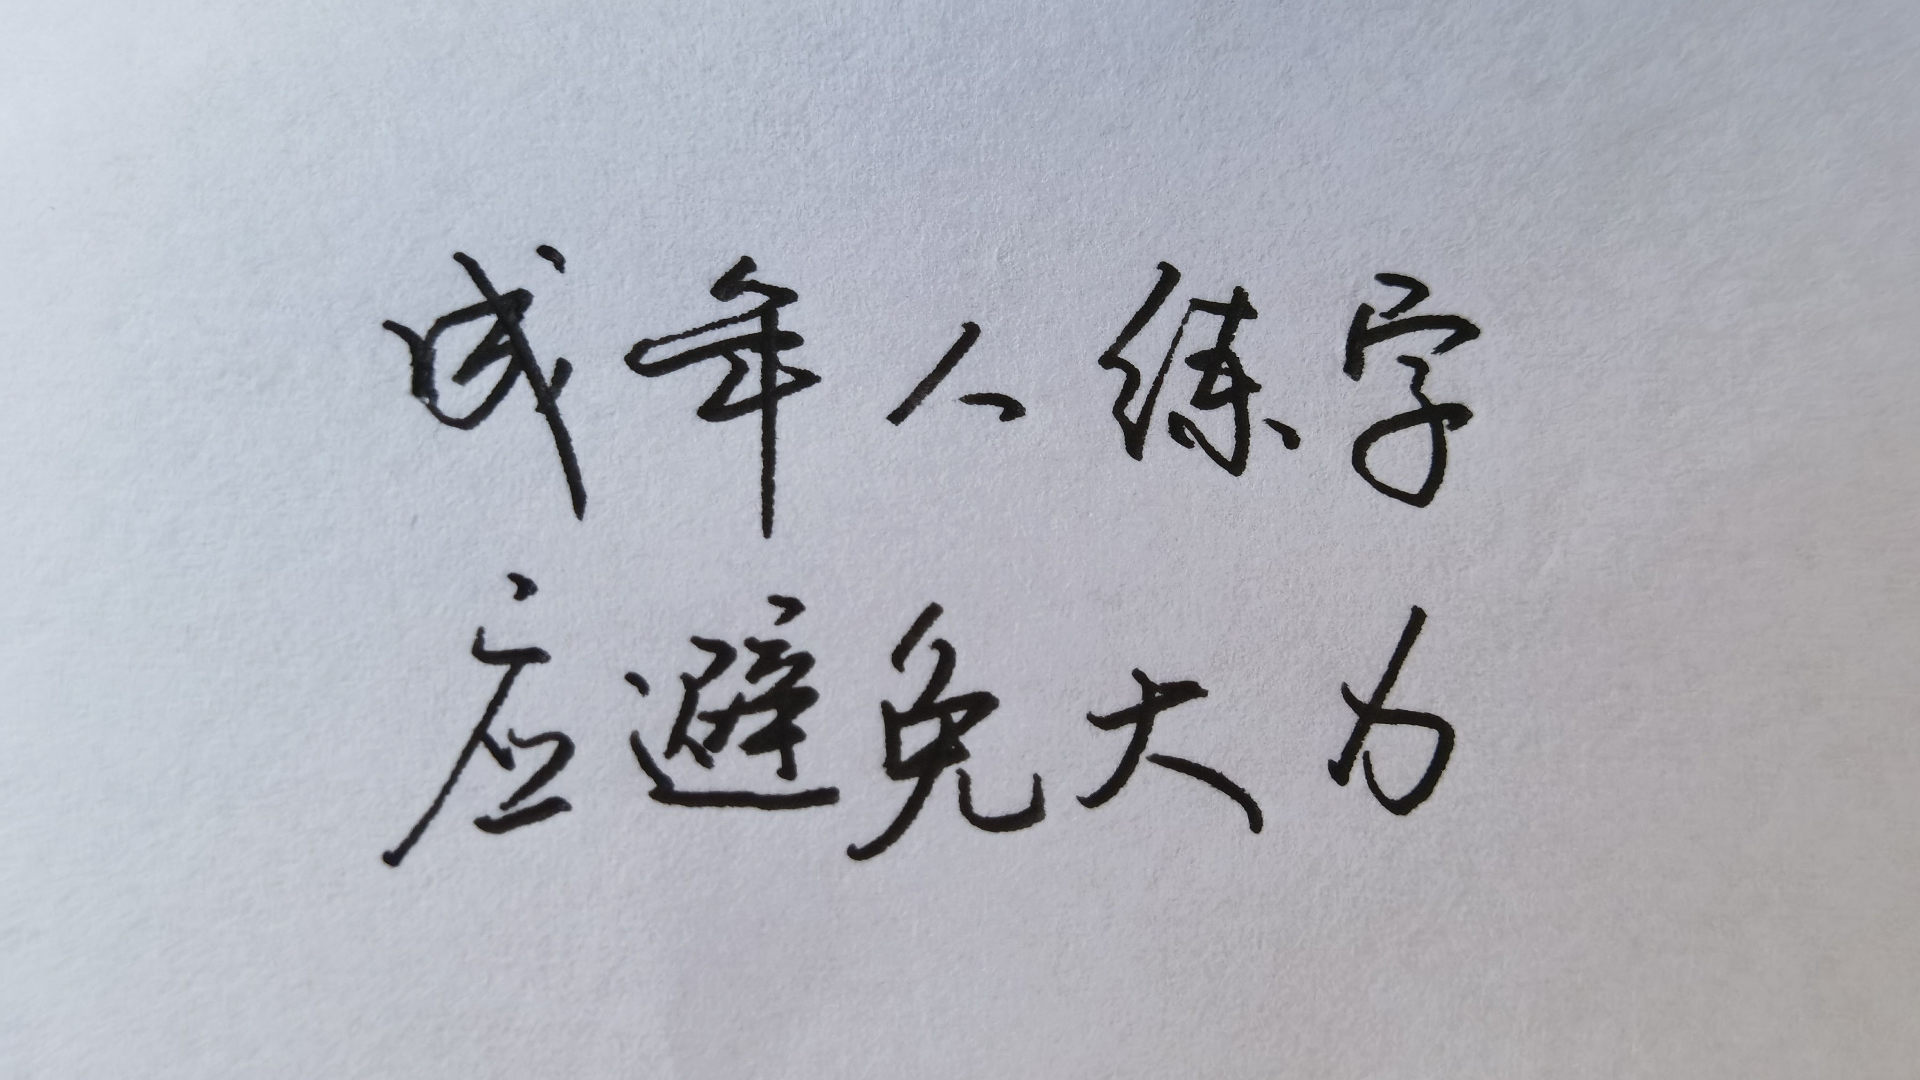 成年人练字
应避免大力